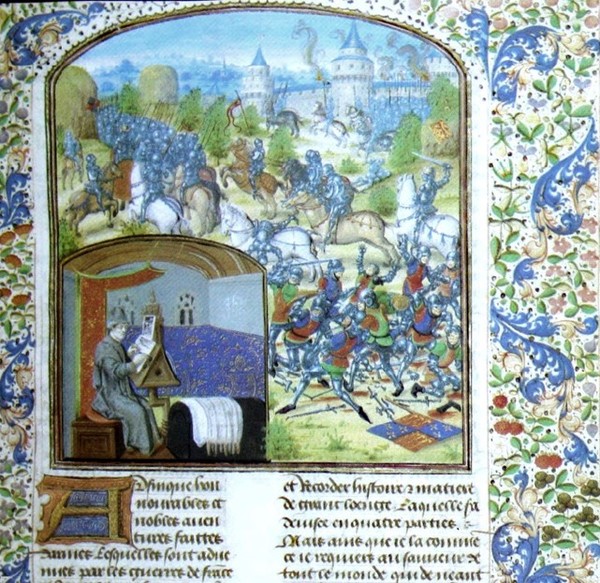 Affinque hon
nourables et
nobles auen
tures faittes
darmes Lesquelles sont adue
nues par les guerres de frāce
et Recorder histoire & matiere
de grant loenge. Laquelle sa
deuisee en quatre parties.
Mais ains que ie la comme
ce ie requiers au sauueur de
tout le monde qui de neant